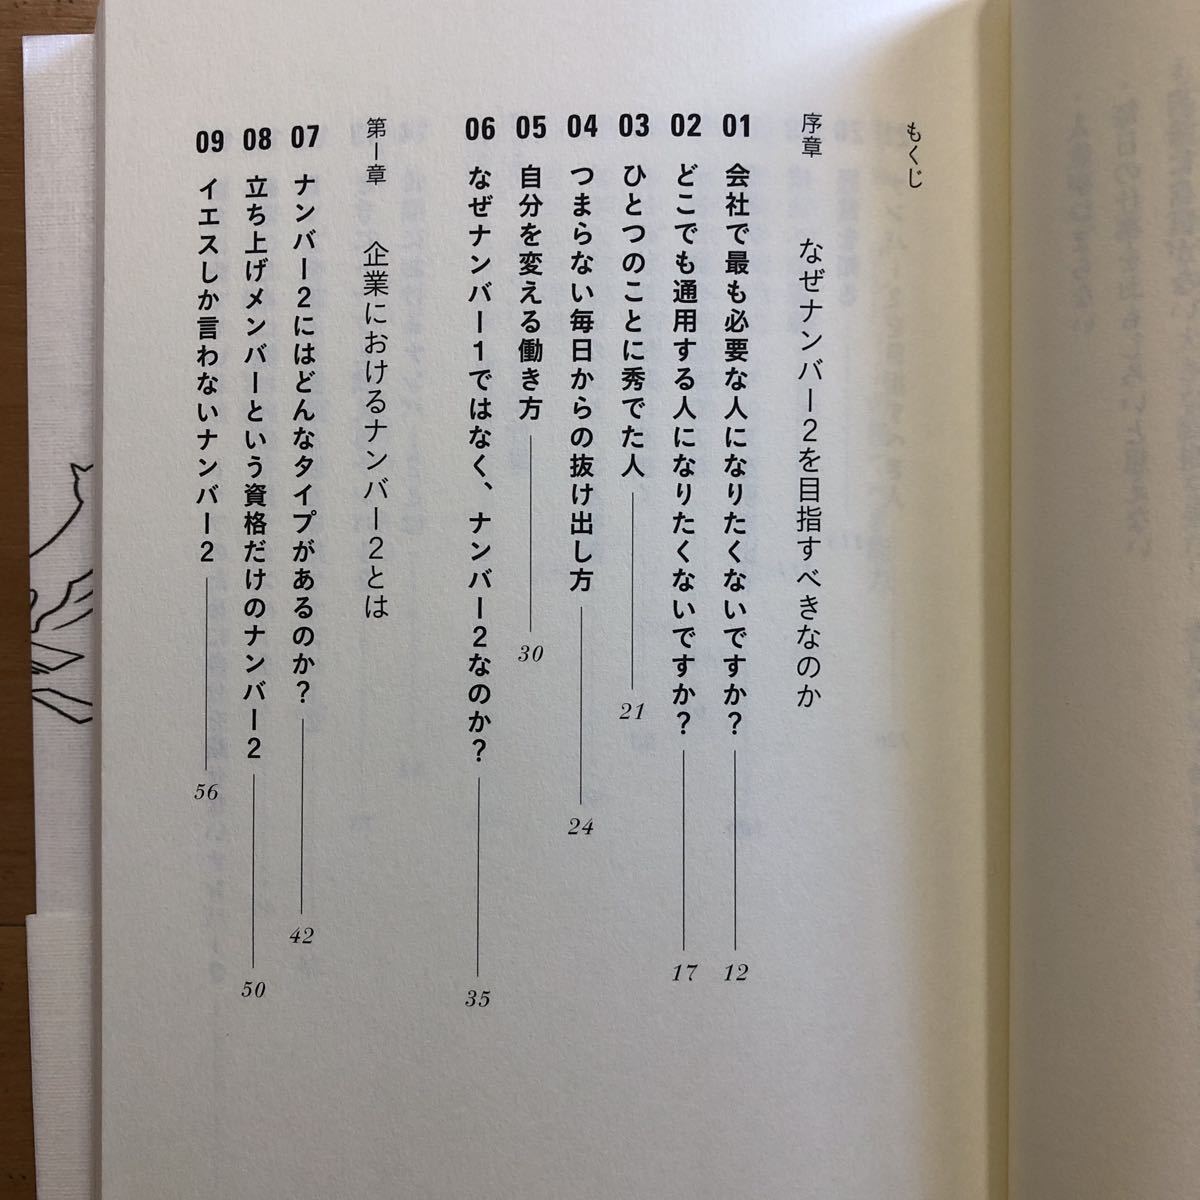 もくじ
序章 なぜナンバー2を目指すべきなのか
01 会社で最も必要な人になりたくないですか? 12
02 どこでも通用する人になりたくないですか? 17
03 ひとつのことに秀でた人 21
04 つまらない毎日からの抜け出し方 24
05 自分を変える働き方 30
06 なぜナンバー1ではなく、ナンバー2なのか? 35
第一章 企業におけるナンバー2とは
07 ナンバー2にはどんなタイプがあるのか? 42
08 立ち上げメンバーという資格だけのナンバー2 50
09 イエスしか言わないナンバー2 56